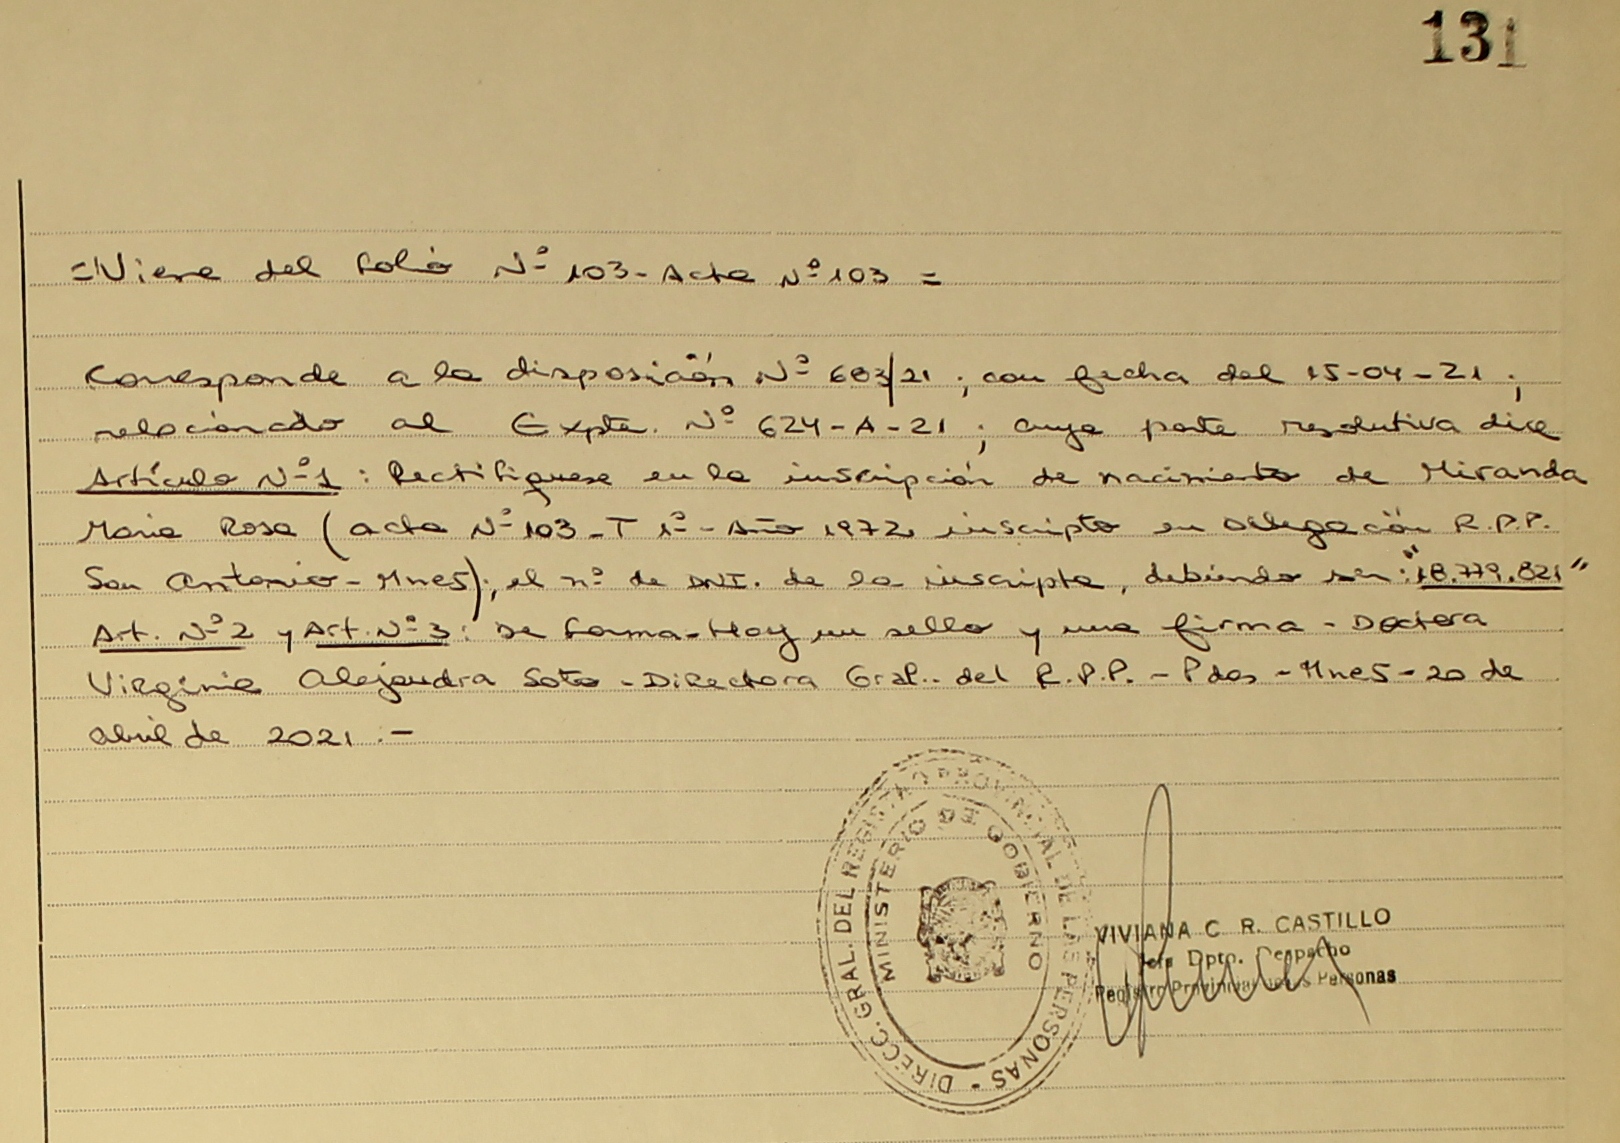 131
=Viene del folio Nº 103- Acta Nº 103 =
Corresponde a la disposición Nº 603/21 ; con fecha del 15-04-21 ;
relacionado al Expte. Nº 624-A-21 ; cuya parte resolutiva dice
Artículo Nº1 : Rectifíquese en la inscripción de nacimiento de Miranda
Maria Rosa (acta Nº 103 - T 1º - Año 1972 inscripto en delegación R.P.P.
San Antonio - Mnes); el nº de DNI. de la inscripta, debiendo ser: "18.779.821"
Art. Nº2 y Art. Nº3: De forma - Hay un sello y una firma - Doctora
Virginia Alejandra Soto - Directora Gral. del R.P.P. - Pdas - Mnes - 20 de
abril de 2021 :-
DIRECC. GRAL. DEL REGISTRO PROVINCIAL DE LAS PERSONAS -
MINISTERIO DE GOBIERNO
VIVIANA C R. CASTILLO
Jefa Dpto. Despacho
Registro Provincial Personas